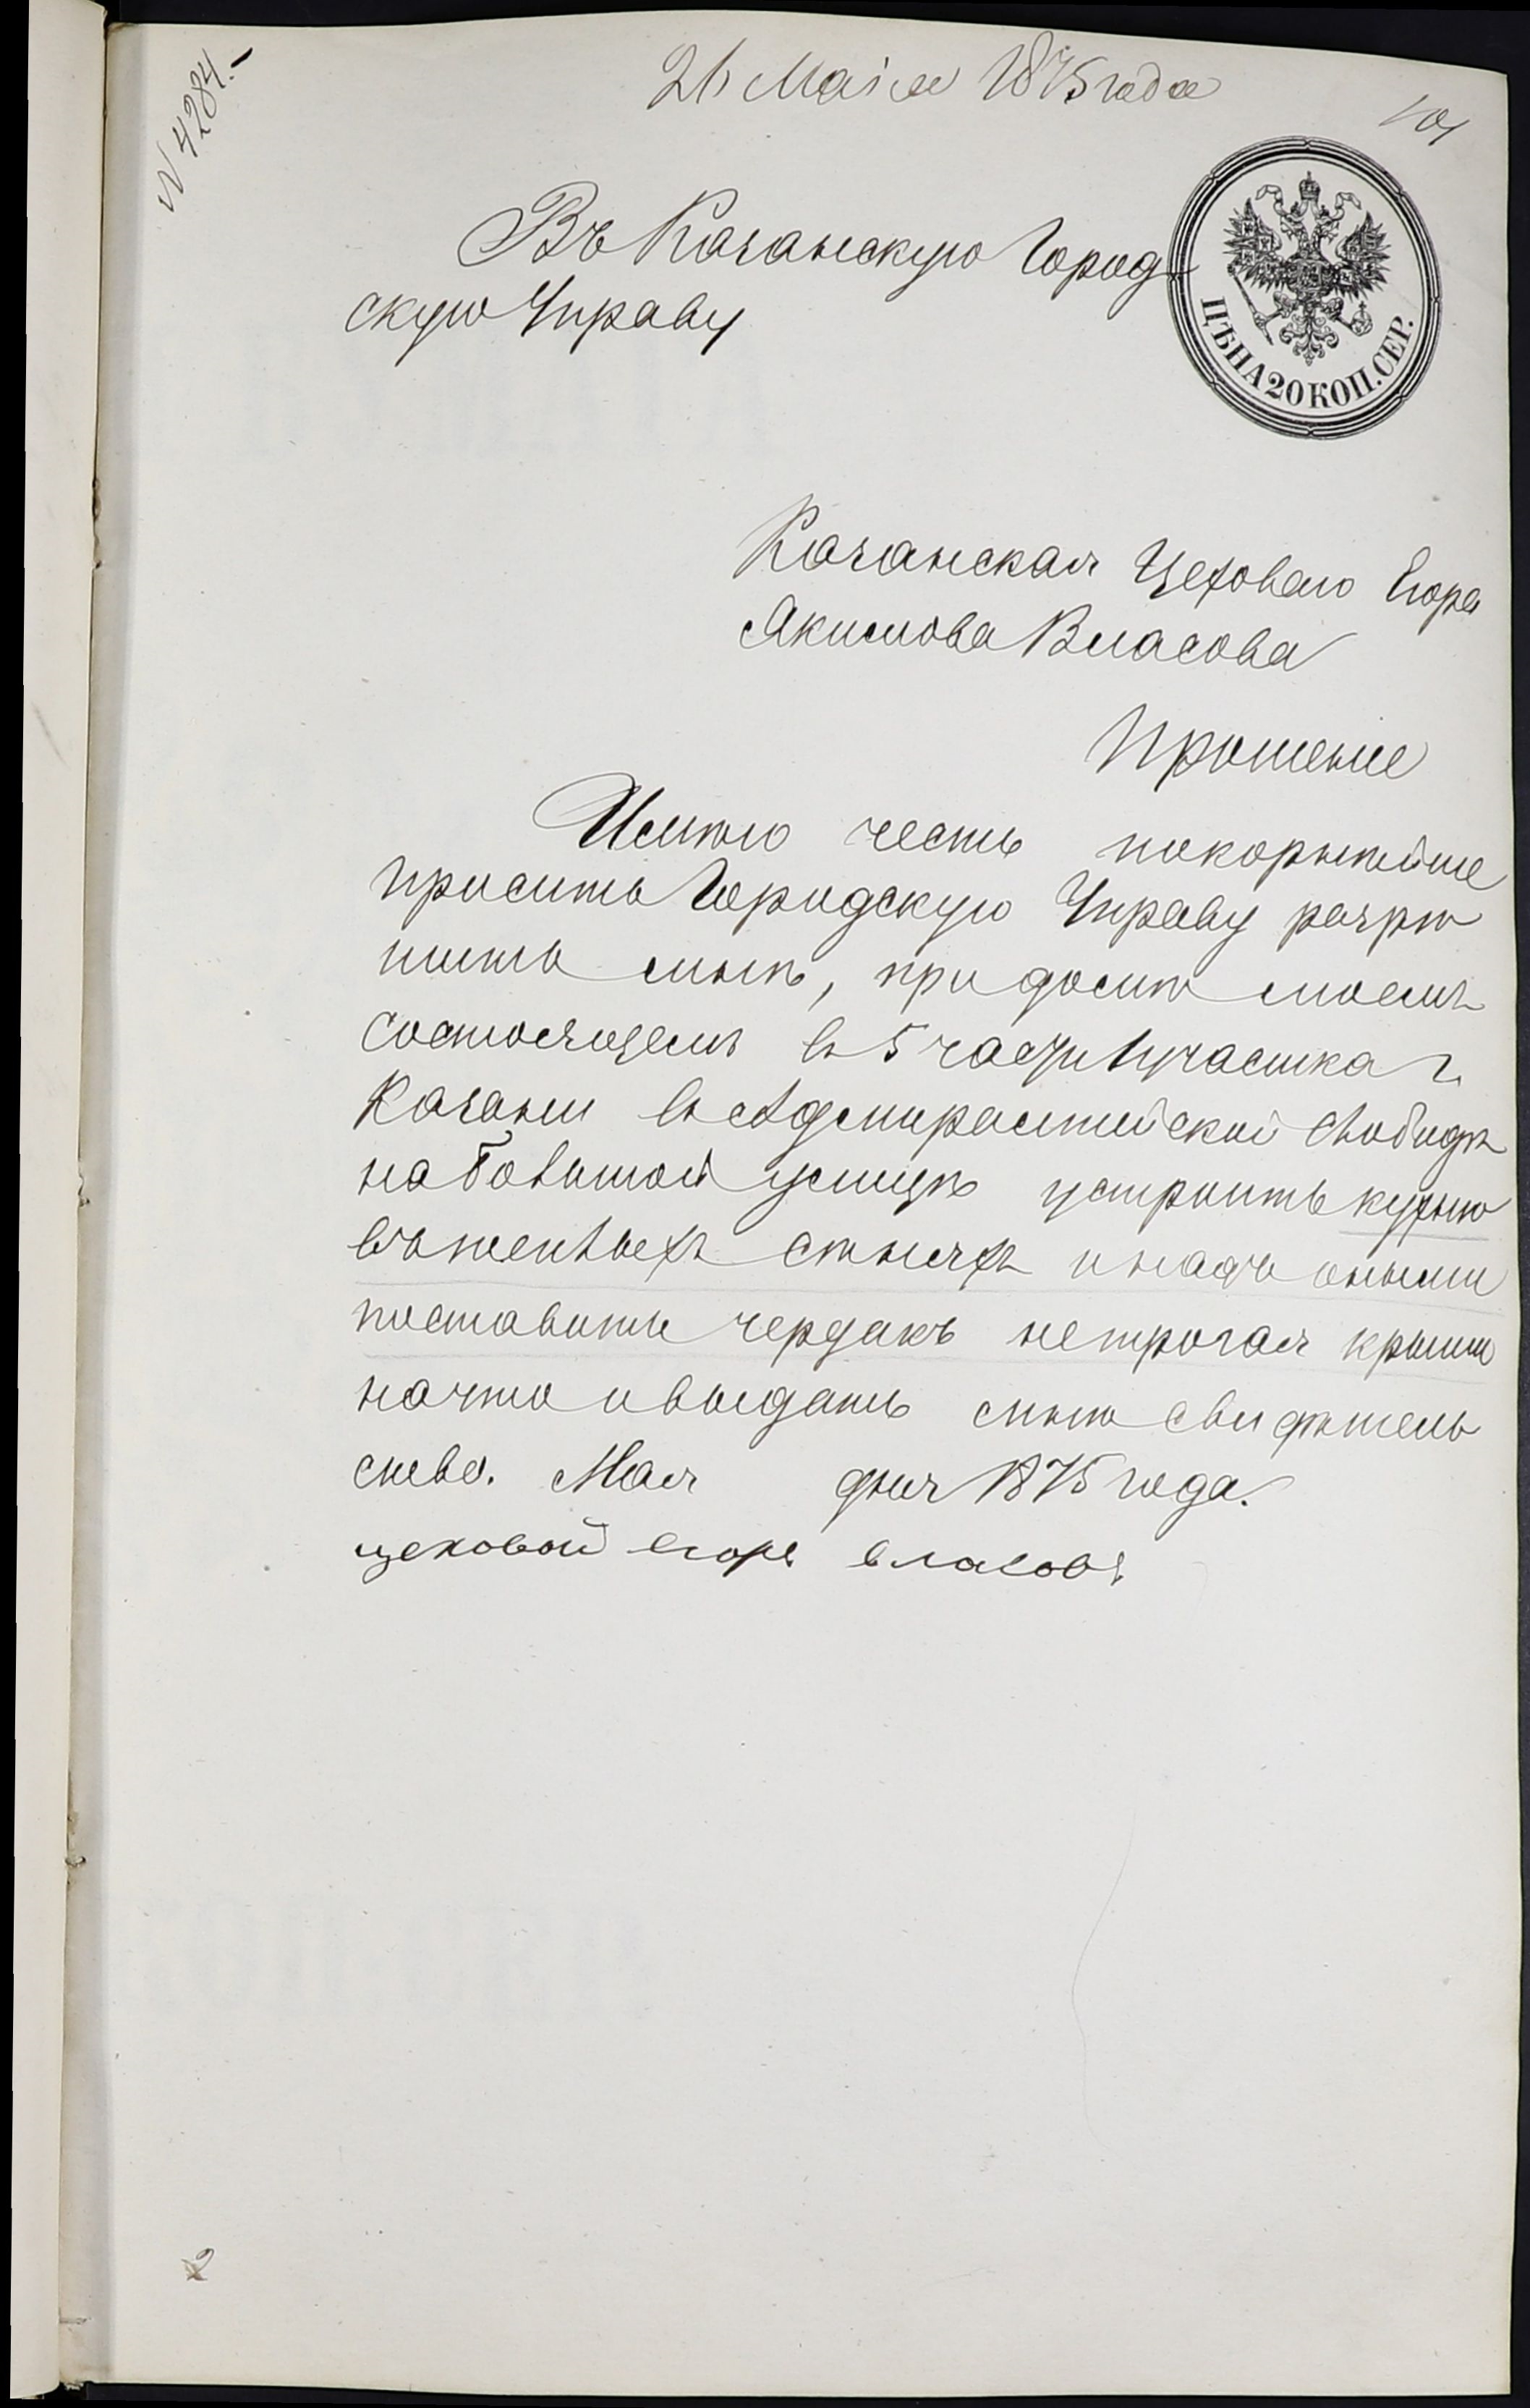 N 4284.-
26 Маiя 1875 года
101
Въ Казанскую Город-
скую Управу
ЦѢНА 20 КОП. СЕР.
Казанская Цеховаго Егора
Акимова Власова
Прошение
Имѣю честь покорнѣйше
просить Городскую Управу разрѣ
шить мнѣ, при домѣ моемъ
состоящемъ въ 5 части 1 участка г.
Казани въ Адмиралтейской Слободѣ
на Большой улицѣ устроить кухню
въ каменныхъ стѣнахъ и надъ оными
поставить чердакъ не трогая крыши
на что и выдать мнѣ свидѣтель
ство. Мая дня 1875 года.
цеховой егоръ власовъ
2